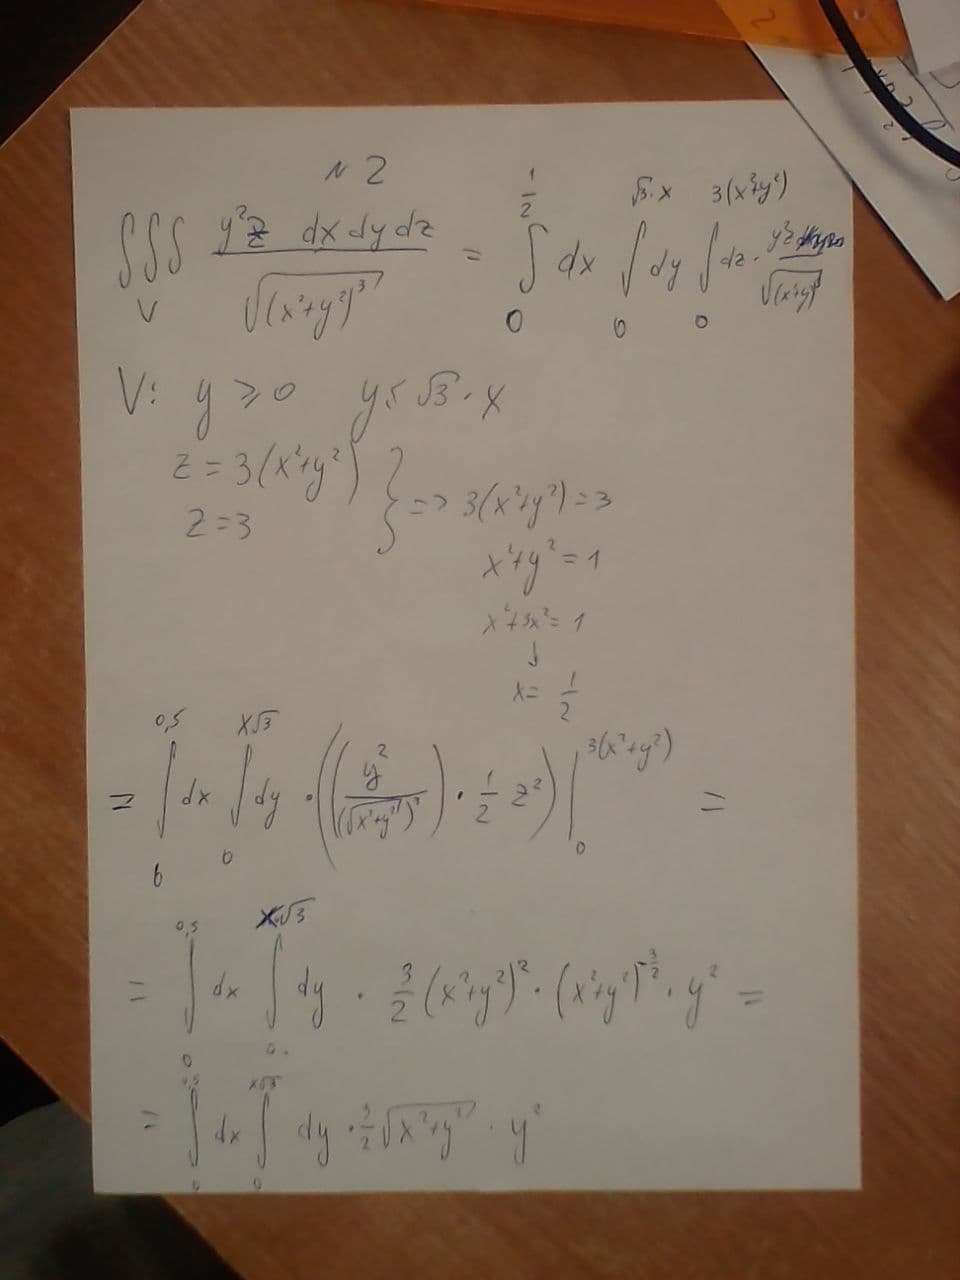 N 2
∫∫∫_V (y²z dx dy dz)/√(x²+y²)³ = ∫_0^{1/2} dx ∫_0^{√3·x} dy ∫_0^{3(x²+y²)} dz · y²z/√(x²+y²)³
V: y ⩾ 0 y ≤ √3 · x
z = 3(x²+y²)
z = 3 } => 3(x²+y²) = 3
x²+y² = 1
x²+3x² = 1
↓
x = 1/2
= ∫_0^{0,5} dx ∫_0^{x√3} dy · ((y²/(√x²+y²)³) · 1/2 z²) |_0^{3(x²+y²)} =
= ∫_0^{0,5} dx ∫_0^{x√3} dy · 3/2 (x²+y²)² · (x²+y²)^{-3/2} · y² =
= ∫_0^{0,5} dx ∫_0^{x√3} dy · 3/2 √x²+y² · y²